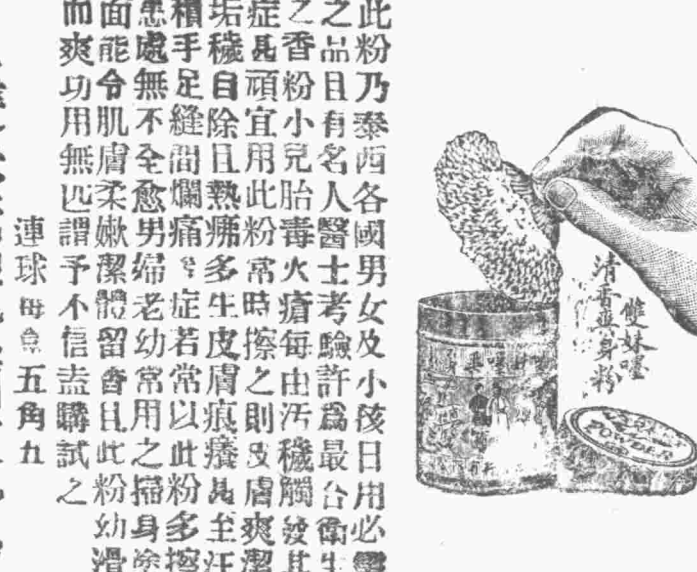 雙妹嚜
清香爽身粉
POWDER
此粉乃泰西各國男女及小孩日用必需
之品且有名人醫士考驗許爲最合衛生
之香粉小兒胎毒火瘡每由汚穢觸發其
症甚頑宜用此粉常時擦之則皮膚爽潔
垢穢自除且熱痱多生皮膚痕癢甚至汗
積手足縫間爛痛等症若常以此粉多擦
患處無不全愈男婦老幼常用之掃身塗
面能令肌膚柔嫩潔體留香且此粉幼滑
而爽功用無匹謂予不信盍購試之
連球每盒五角五